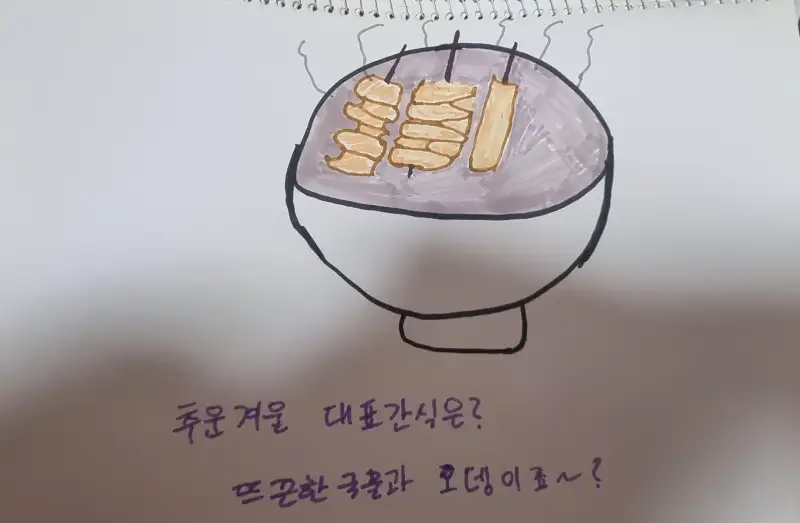 추운겨울 대표간식은?
뜨끈한국물과 오뎅이죠~?